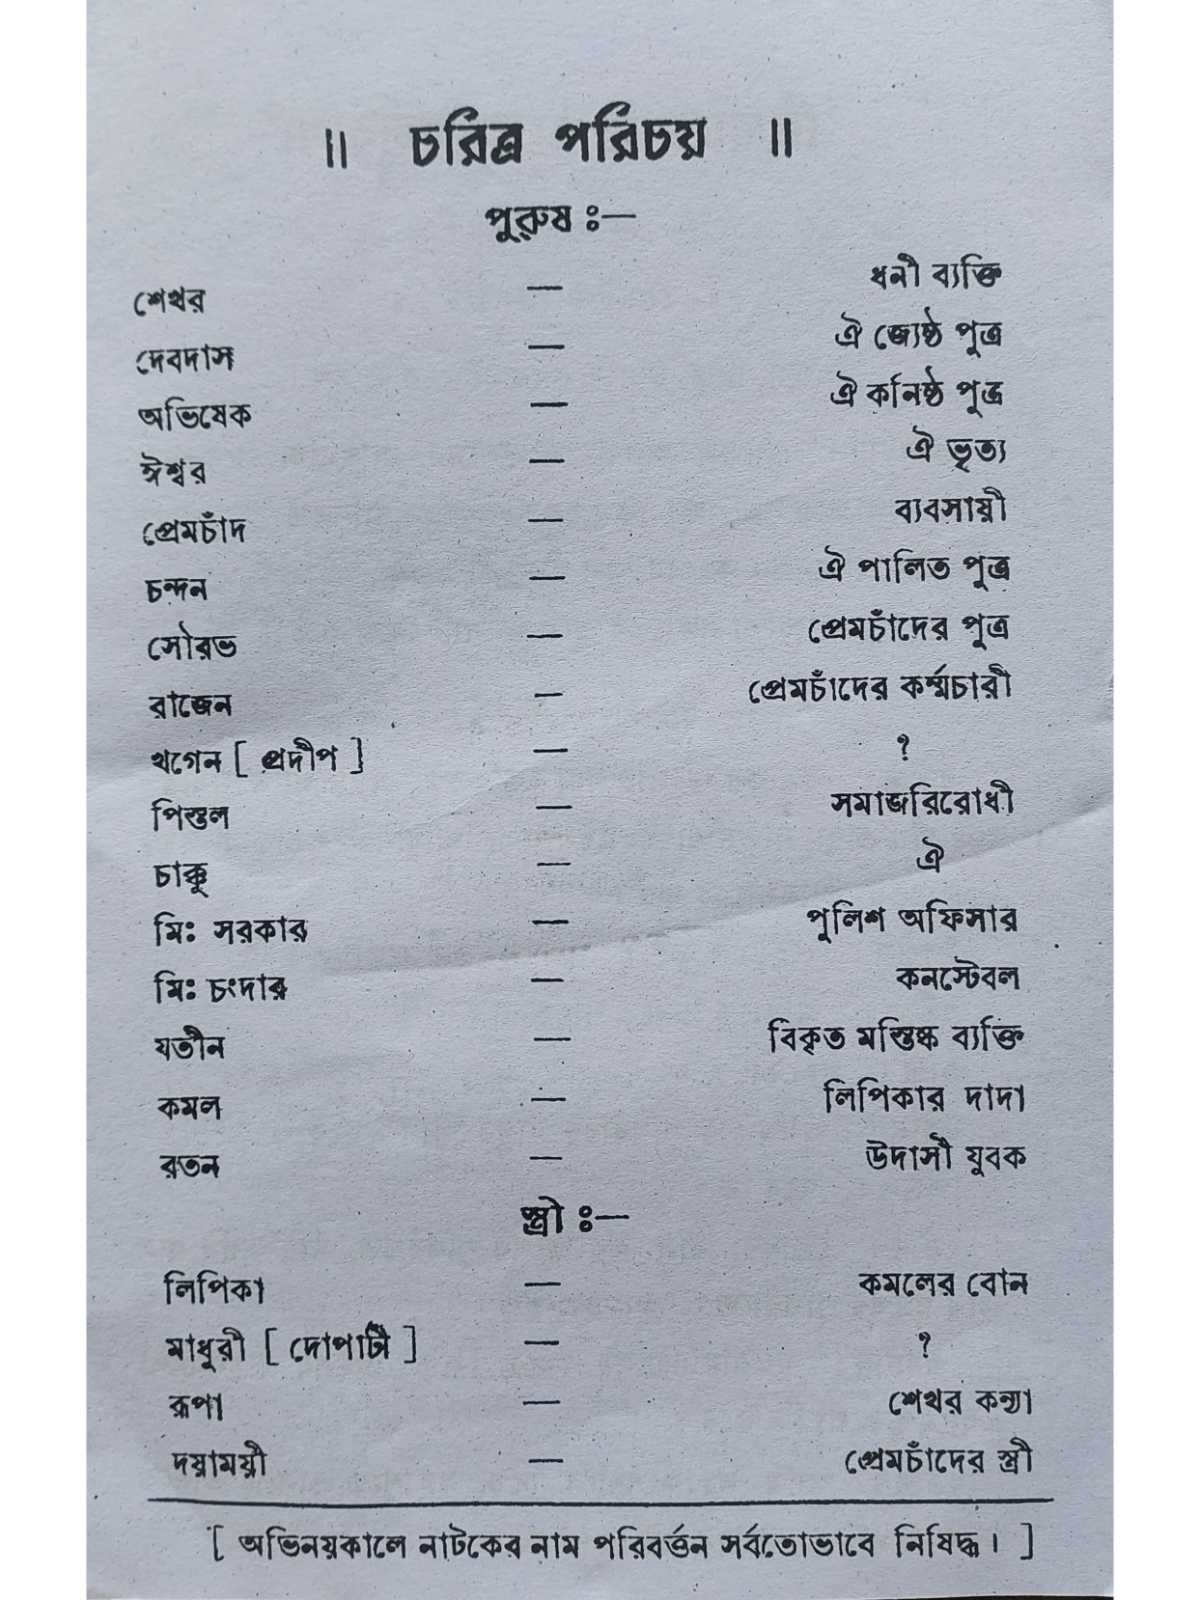 ॥ চরিত্র পরিচয় ॥
পুরুষ ঃ—
শেখর — ধনী ব্যক্তি
দেবদাস — ঐ জ্যেষ্ঠ পুত্র
অভিষেক — ঐ কনিষ্ঠ পুত্র
ঈশ্বর — ঐ ভৃত্য
প্রেমচাঁদ — ব্যবসায়ী
চন্দন — ঐ পালিত পুত্র
সৌরভ — প্রেমচাঁদের পুত্র
রাজেন — প্রেমচাঁদের কর্ম্মচারী
খগেন [ প্রদীপ ] — ?
পিস্তল — সমাজরিরোধী
চাক্কু — ঐ
মিঃ সরকার — পুলিশ অফিসার
মিঃ চংদার — কনস্টেবল
যতীন — বিকৃত মস্তিষ্ক ব্যক্তি
কমল — লিপিকার দাদা
রতন — উদাসী যুবক
স্ত্রী ঃ—
লিপিকা — কমলের বোন
মাধুরী [ দোপাটী ] — ?
রূপা — শেখর কন্যা
দয়াময়ী — প্রেমচাঁদের স্ত্রী
[ অভিনয়কালে নাটকের নাম পরিবর্ত্তন সর্বতোভাবে নিষিদ্ধ। ]